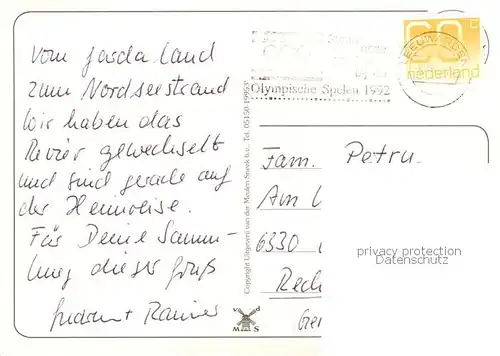 vom jarda land
zum Nordseestrand
Wir haben das
Revier gewechselt
und sind gerade auf
der Heimreise.
Für Deine Samm-
lung dieser Gruß
+ Rainer
Olympische Spelen 1992
LEEUWARDEN
60 c
nederland
Copyright Uitgeverij van der Meulen Sneek b.v. Tel. 05150-19953
v d
M S
Fam. Petru.
Am
6330
Rech
privacy protection
Datenschutz